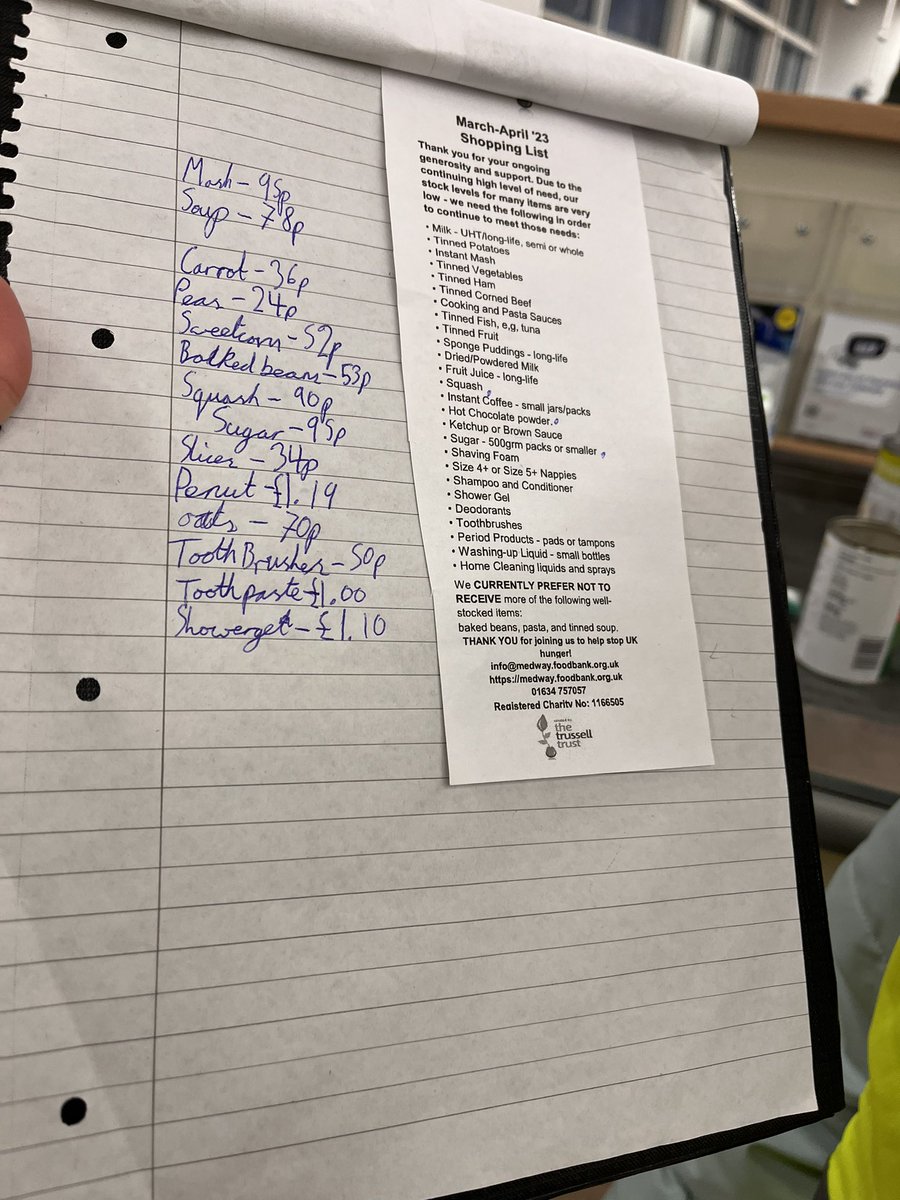 Mash - 95p
Soup - 78p
Carrot - 36p
Peas - 24p
Sweetcorn - 52p
Balked beans - 53p
Squash - 90p
Sugar - 95p
Slices - 34p
Penut - £1.19
oats - 70p
Tooth Brushes - 50p
Toothpaste £1.00
Showergel - £1.10
March-April '23
Shopping List
Thank you for your ongoing
generosity and support. Due to the
continuing high level of need, our
stock levels for many items are very
low - we need the following in order
to continue to meet those needs:
• Milk - UHT/long-life, semi or whole
• Tinned Potatoes
• Instant Mash
• Tinned Vegetables
• Tinned Ham
• Tinned Corned Beef
• Cooking and Pasta Sauces
• Tinned Fish, e,g, tuna
• Tinned Fruit
• Sponge Puddings - long-life
• Dried/Powdered Milk
• Fruit Juice - long-life
• Squash
• Instant Coffee - small jars/packs
• Hot Chocolate powder.
• Ketchup or Brown Sauce
• Sugar - 500grm packs or smaller
• Shaving Foam
• Size 4+ or Size 5+ Nappies
• Shampoo and Conditioner
• Shower Gel
• Deodorants
• Toothbrushes
• Period Products - pads or tampons
• Washing-up Liquid - small bottles
• Home Cleaning liquids and sprays
We CURRENTLY PREFER NOT TO
RECEIVE more of the following well-
stocked items:
baked beans, pasta, and tinned soup.
THANK YOU for joining us to help stop UK
hunger!
info@medway.foodbank.org.uk
https://medway.foodbank.org.uk
01634 757057
Registered Charity No: 1166505
the
trussell
trust